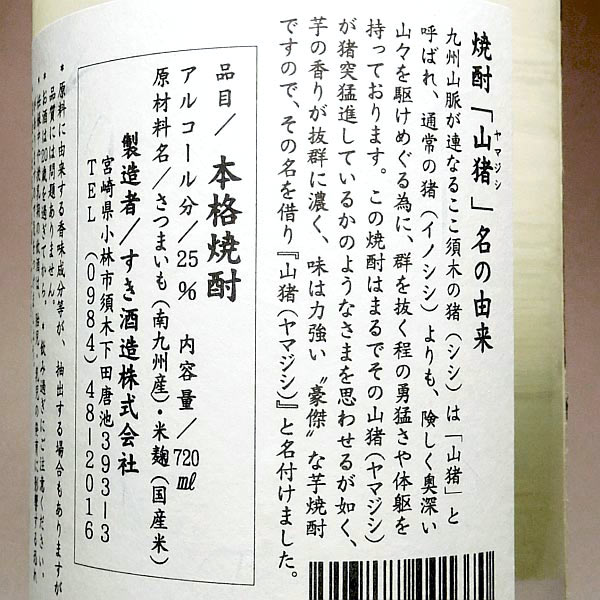 焼酎「山猪」名の由来
ヤマジシ
九州山脈が連なるここ須木の猪(シシ)は「山猪」と
呼ばれ、通常の猪(イノシシ)よりも、険しく奥深い
山々を駆けめぐる為に、群を抜く程の勇猛さや体躯を
持っております。この焼酎はまるでその山猪(ヤマジシ)
が猪突猛進しているかのようなさまを思わせるが如く、
芋の香りが抜群に濃く、味は力強い〝豪傑〟な芋焼酎
ですので、その名を借り『山猪(ヤマジシ)』と名付けました。
品目/本格焼酎
アルコール分/25% 内容量/720㎖
原材料名/さつまいも(南九州産)・米麹(国産米)
製造者/すき酒造株式会社
宮崎県小林市須木下田唐池393-3
TEL (0984) 48-2016
*原料に由来する香味成分等が、抽出する場合もありますが
品質には問題ありません。
*お酒は20歳を過ぎてから。・飲み過ぎにご注意ください。